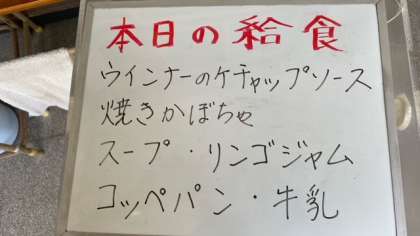 本日の給食
ウインナーのケチャップソース
焼きかぼちゃ
スープ・リンゴジャム
コッペパン・牛乳